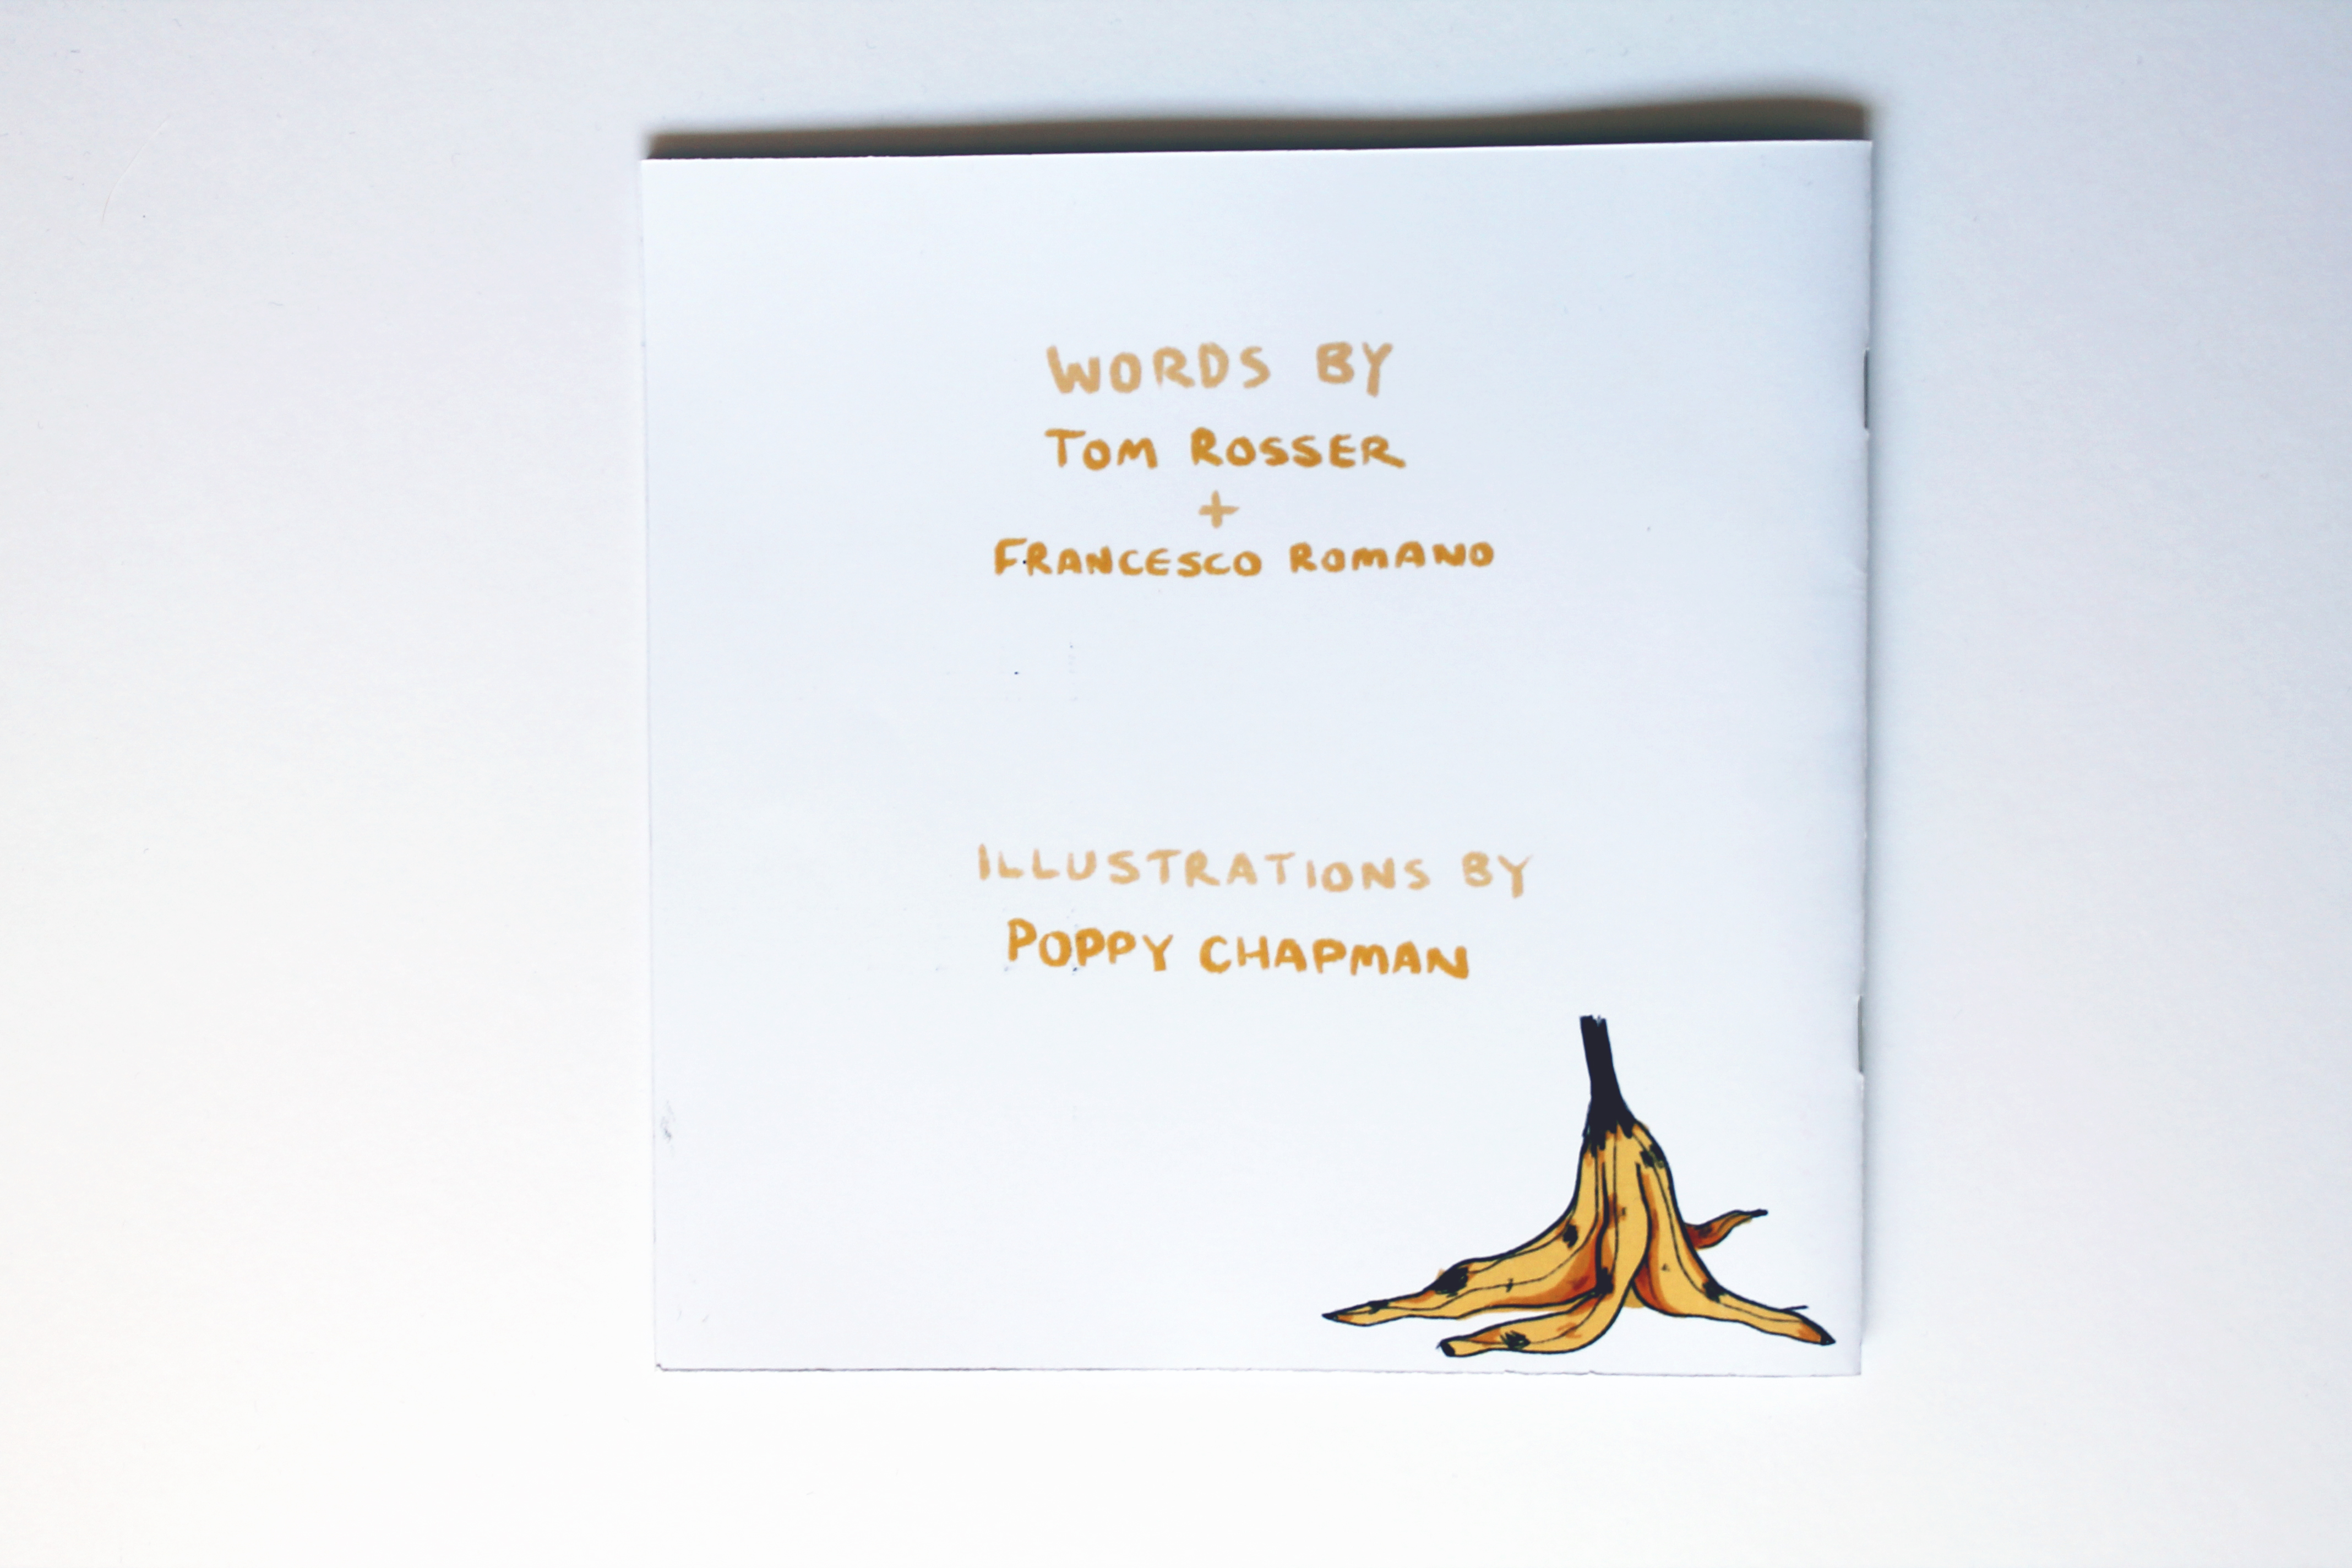 WORDS BY
TOM ROSSER
+
FRANCESCO ROMANO
ILLUSTRATIONS BY
POPPY CHAPMAN